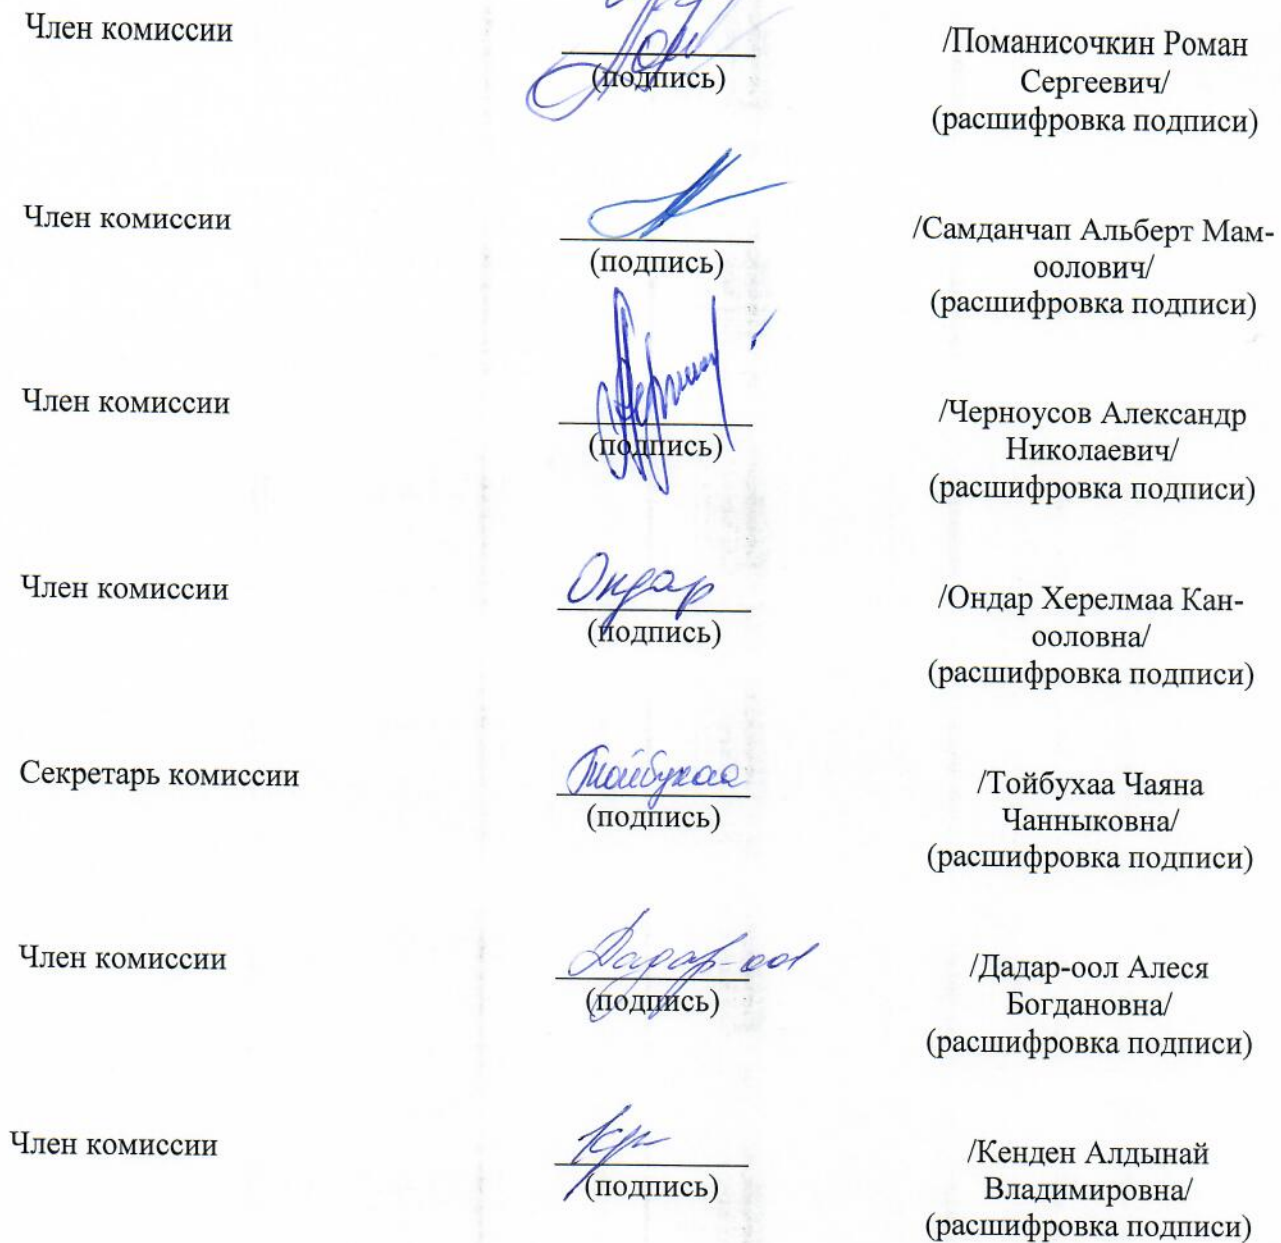 Член комиссии
(подпись)
/Поманисочкин Роман
Сергеевич/
(расшифровка подписи)
Член комиссии
(подпись)
/Самданчап Альберт Мам-
оолович/
(расшифровка подписи)
Член комиссии
(подпись)
/Черноусов Александр
Николаевич/
(расшифровка подписи)
Член комиссии
Ондар
(подпись)
/Ондар Херелмаа Кан-
ооловна/
(расшифровка подписи)
Секретарь комиссии
Тойбухаа
(подпись)
/Тойбухаа Чаяна
Чанныковна/
(расшифровка подписи)
Член комиссии
Дадар-оол
(подпись)
/Дадар-оол Алеся
Богдановна/
(расшифровка подписи)
Член комиссии
(подпись)
/Кенден Алдынай
Владимировна/
(расшифровка подписи)